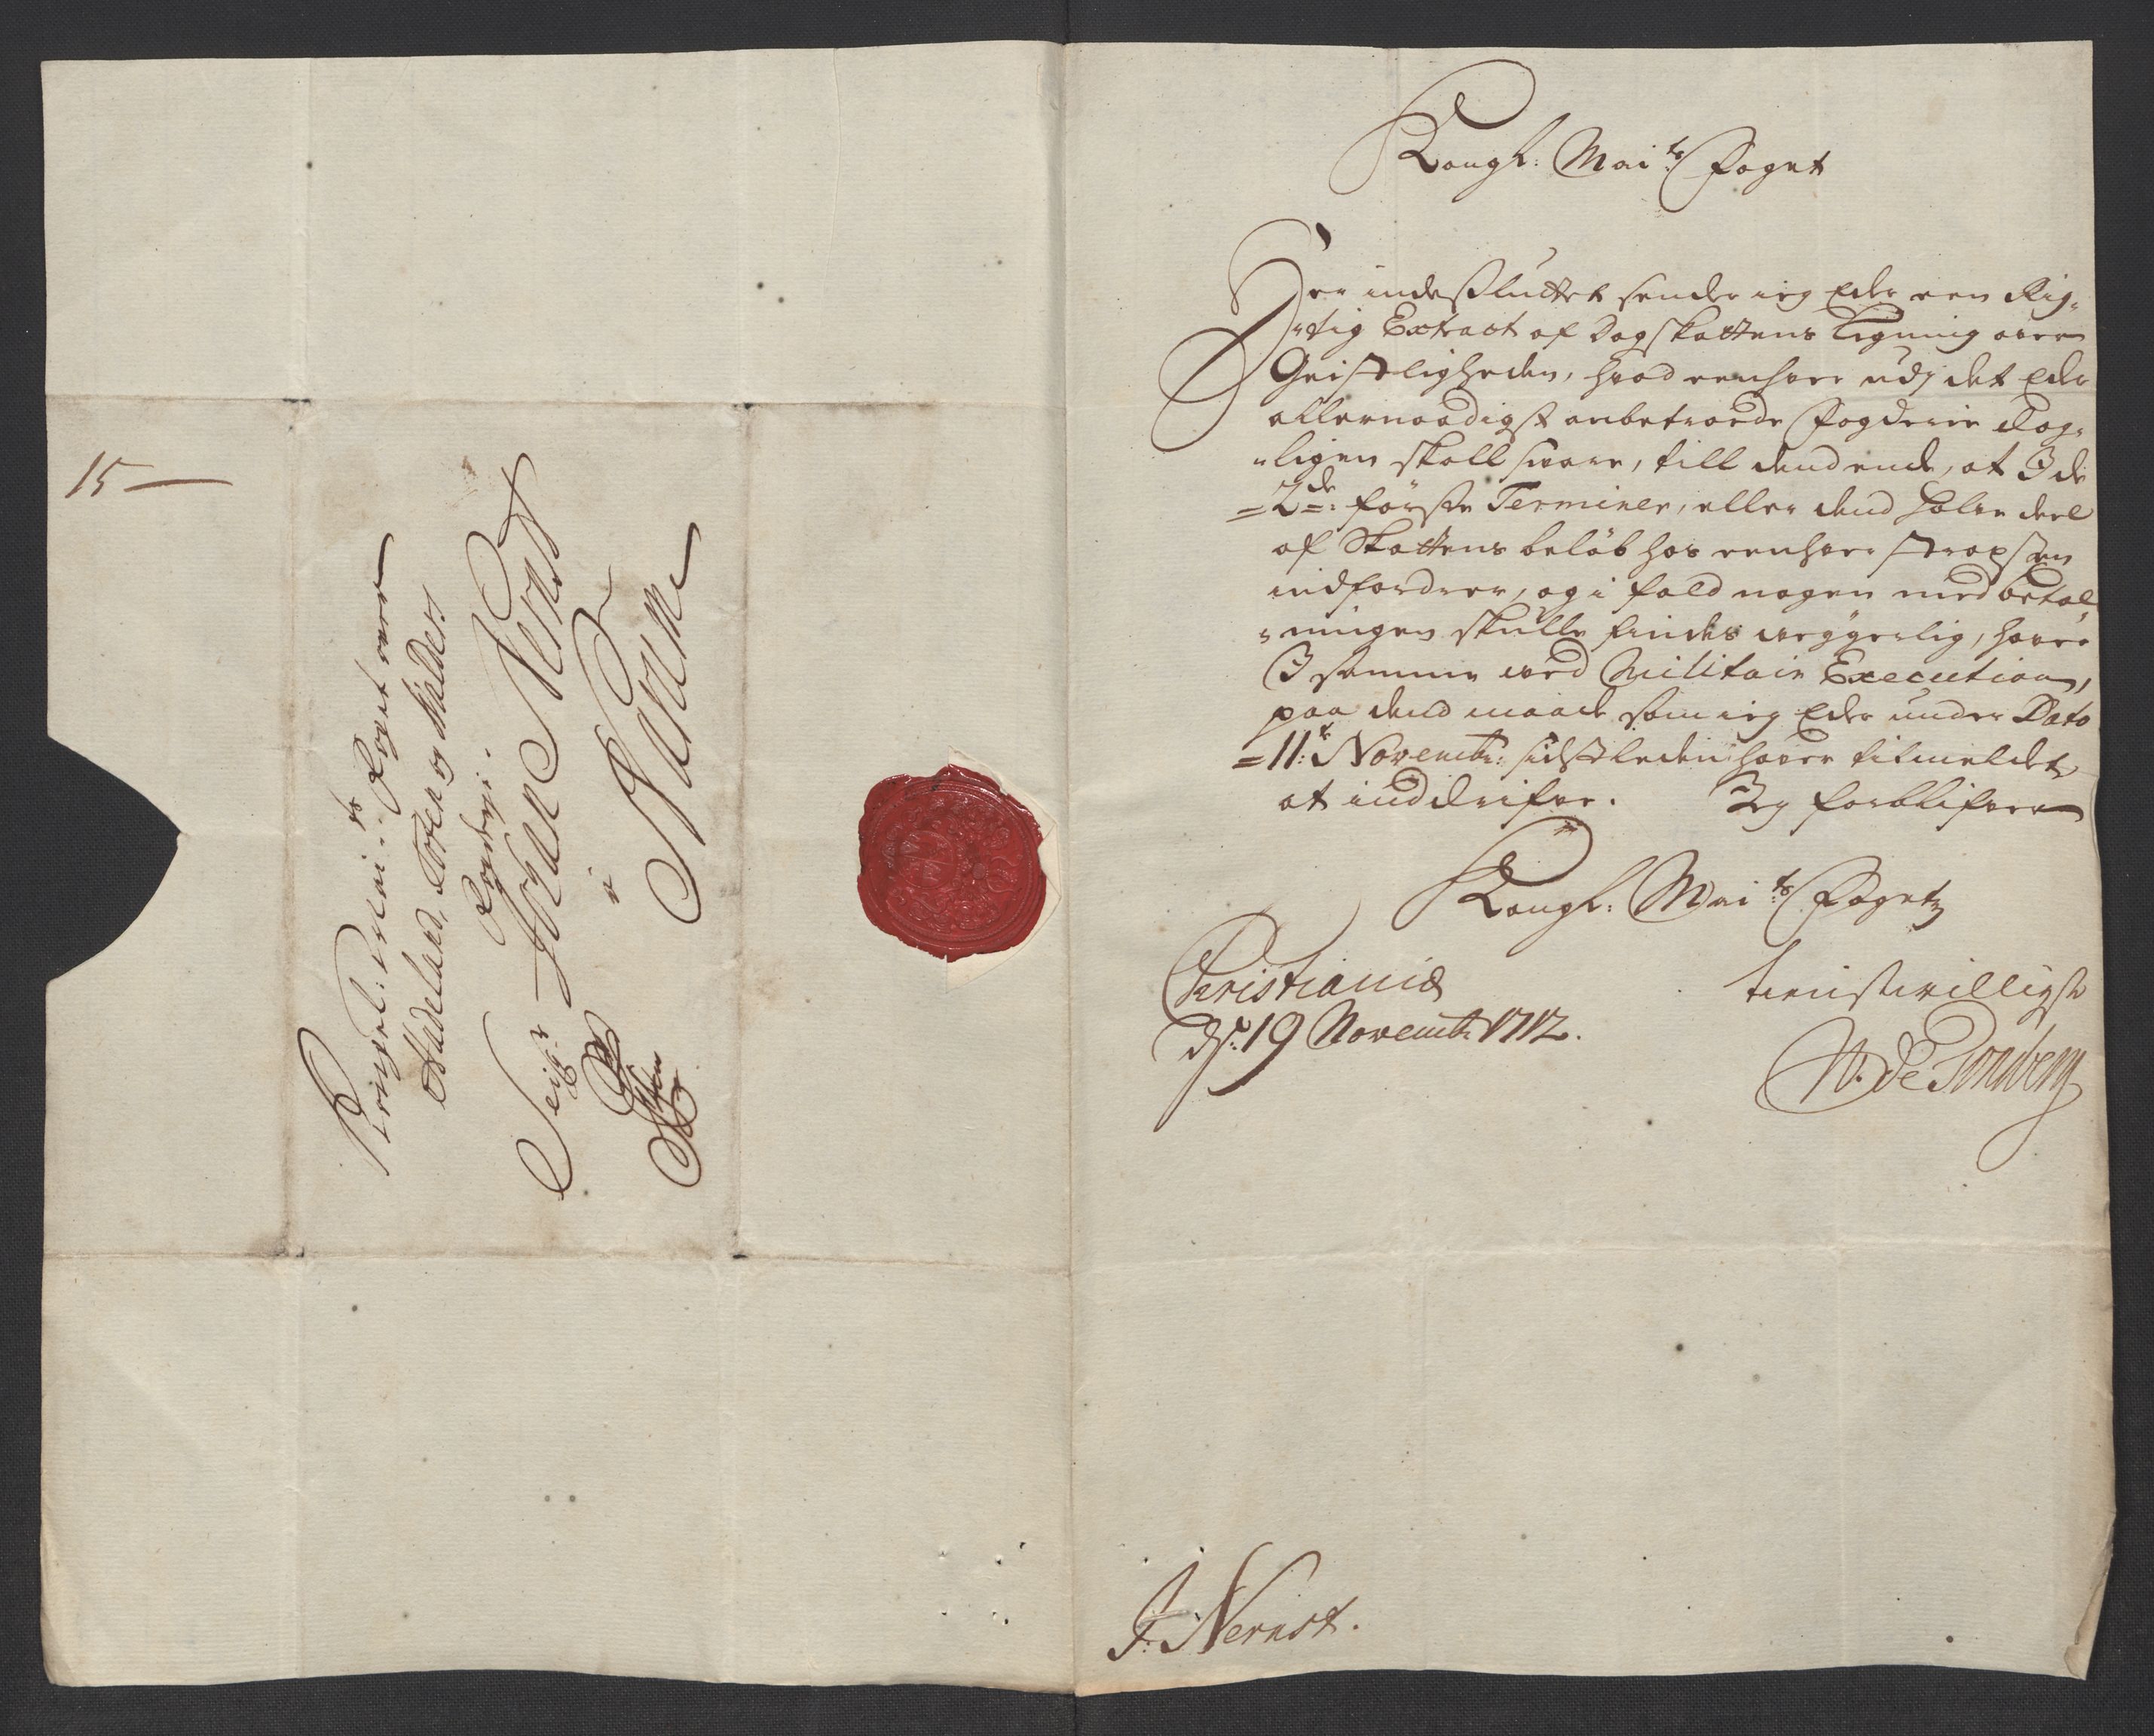 15 —
Kongel: Mai:ts Foget over
Hadeland, Toten og Valders
Fogderi.
Seigr Johan Nernst
i
Kongl: Maits Foget
Her indesluttet sender ieg Eder een Rig-
-tig Extract af Dagskattens Ligning over
Geistligheden, hvad eenhver udj det Eder
allernaadigst anbetroede Fogderie dag-
-ligen skall svare, till dend ende, at I de
=2de: første Terminer, eller dend halve deel
af Skattens beløb hos eenhver strax
indfordrer, og i fald nogen med betal-
-ningen skulle findes veggerlig, haver
I samme ved Militair Execution,
paa dend maade som ieg Eder under Dato
=11te Novembr: sidstleden haver tilmeldet,
at inddrifve. Jeg forblifver
Kongl: Maits Fogetz
Christiania
ds: 19 Novembr 1712.
tienstvilligste
W. de Tonsberg
J: Nernst.